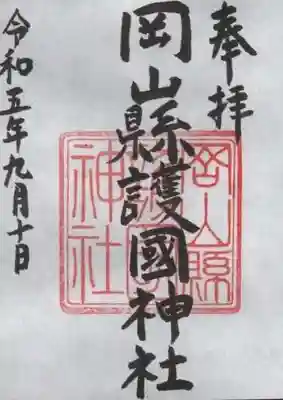 奉拝
岡山縣護國神社
岡山縣護國神社
令和五年九月十日